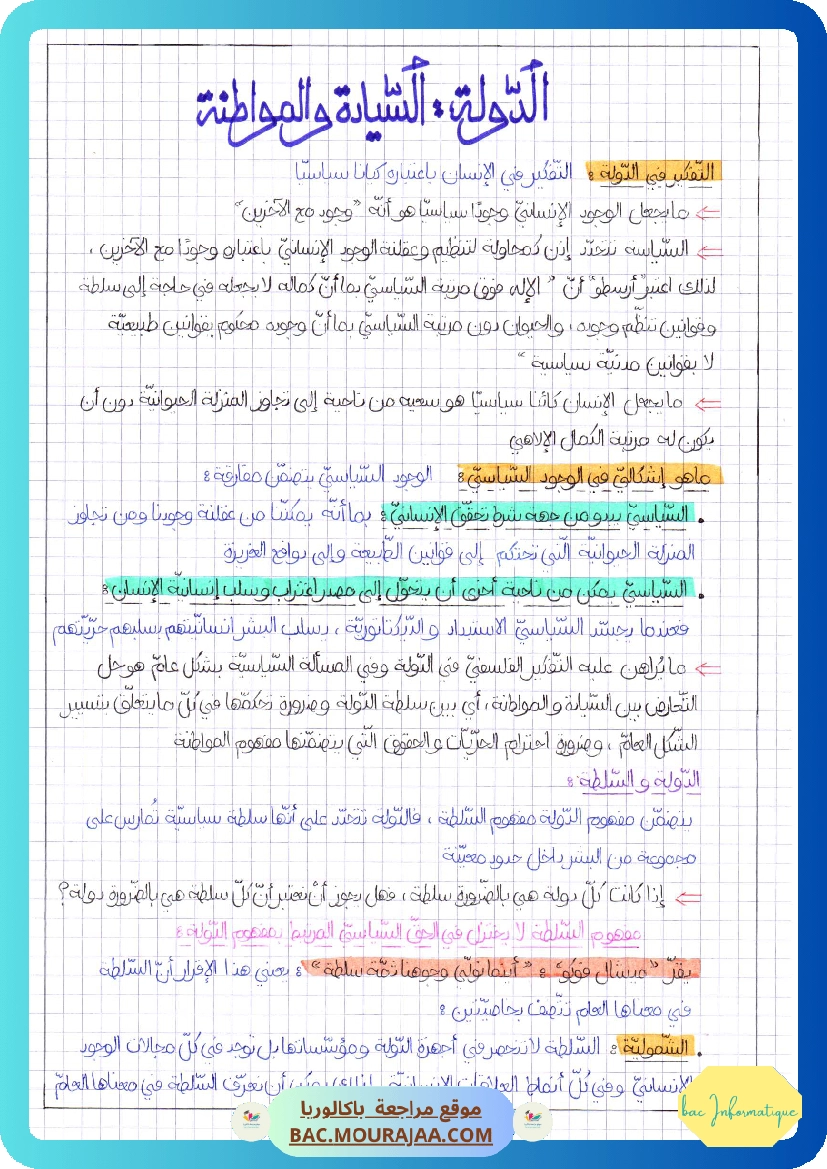 الدّولة: السّيادة والمواطنة
التّفكير في الدّولة : التّفكير في الإنسان باعتباره كيانا سياسيّا
⇐ ما يجعل الوجود الإنسانيّ وجودًا سياسيّا هو أنّه "وجود مع الآخرين"
⇐ السّياسة تتحدّد إذن كمحاولة لتنظيم وعقلنة الوجود الإنسانيّ باعتباره وجودًا مع الآخرين ،
لذلك اعتبر أرسطو أنّ " الإله فوق مرتبة السّياسيّ بما أنّ كماله لا يجعله في حاجة إلى سلطة
وقوانين تنظّم وجوده ، والحيوان دون مرتبة السّياسيّ بما أنّ وجوده محكوم بقوانين طبيعيّة
لا بقوانين مدنيّة سياسية "
⇐ ما يجعل الإنسان كائنا سياسيّا هو سعيه من ناحية إلى تجاوز المنزلة الحيوانيّة دون أن
يكون له مرتبة الكمال الإلاهي
ماهو إشكاليّ في الوجود السّياسيّ : الوجود السّياسيّ يتضمّن مفارقة :
. السّياسيّ يبدو من جهة شرط تحقّق الإنسانيّ : بما أنّه يمكّننا من عقلنة وجودنا ومن تجاوز
المنزلة الحيوانيّة الّتي تحتكم إلى قوانين الطّبيعة وإلى دوافع الغريزة
. السّياسيّ يمكن من ناحية أخرى أن يتحوّل إلى مصدر اغتراب وسلب إنسانيّة الإنسان :
فعندما يجسّد السّياسيّ الاستبداد والدّيكتاتوريّة ، يسلب البشر إنسانيّتهم بسلبهم حرّيّتهم
⇐ ما يُراهن عليه التّفكير الفلسفيّ في الدّولة وفي المسألة السّياسيّة بشكل عامّ هو حل
التّعارض بين السّيادة والمواطنة ، أي بين سلطة الدّولة وضرورة تحكمّها في كلّ ما يتعلّق بتسيير
الشّكل العامّ ، وضرورة احترام الحرّيّات والحقوق الّتي يتضمّنها مفهوم المواطنة
الدّولة والسّلطة :
يتضمّن مفهوم الدّولة مفهوم السّلطة ، فالدّولة تتحدّد على أنّها سلطة سياسيّة تُمارس على
مجموعة من البشر داخل حدود معيّنة
⇐ إذا كانت كلّ دولة هي بالضّرورة سلطة ، فهل يجوز أنْ نعتبر أنّ كلّ سلطة هي بالضّرورة دولة؟
مفهوم السّلطة لا يختزل في الحقّ السّياسيّ المرتبط بمفهوم الدّولة :
يقرّ "ميشال فوكو" : "أينما نولّي وجوهنا ثمّة سلطة" : يعني هذا الإقرار أنّ السّلطة
في معناها العام تتّصف بخاصيّتين :
. الشّموليّة : السّلطة لا تنحصر في أجهزة الدّولة ومؤسّساتها بل توجد في كلّ مجالات الوجود
الإنسانيّ وفي كُلّ أنماط العلاقات الإنسانيّة لذلك يمكن أن نعرّف السّلطة في معناها العامّ
موقع مراجعة باكالوريا
BAC.MOURAJAA.COM
bac Informatique